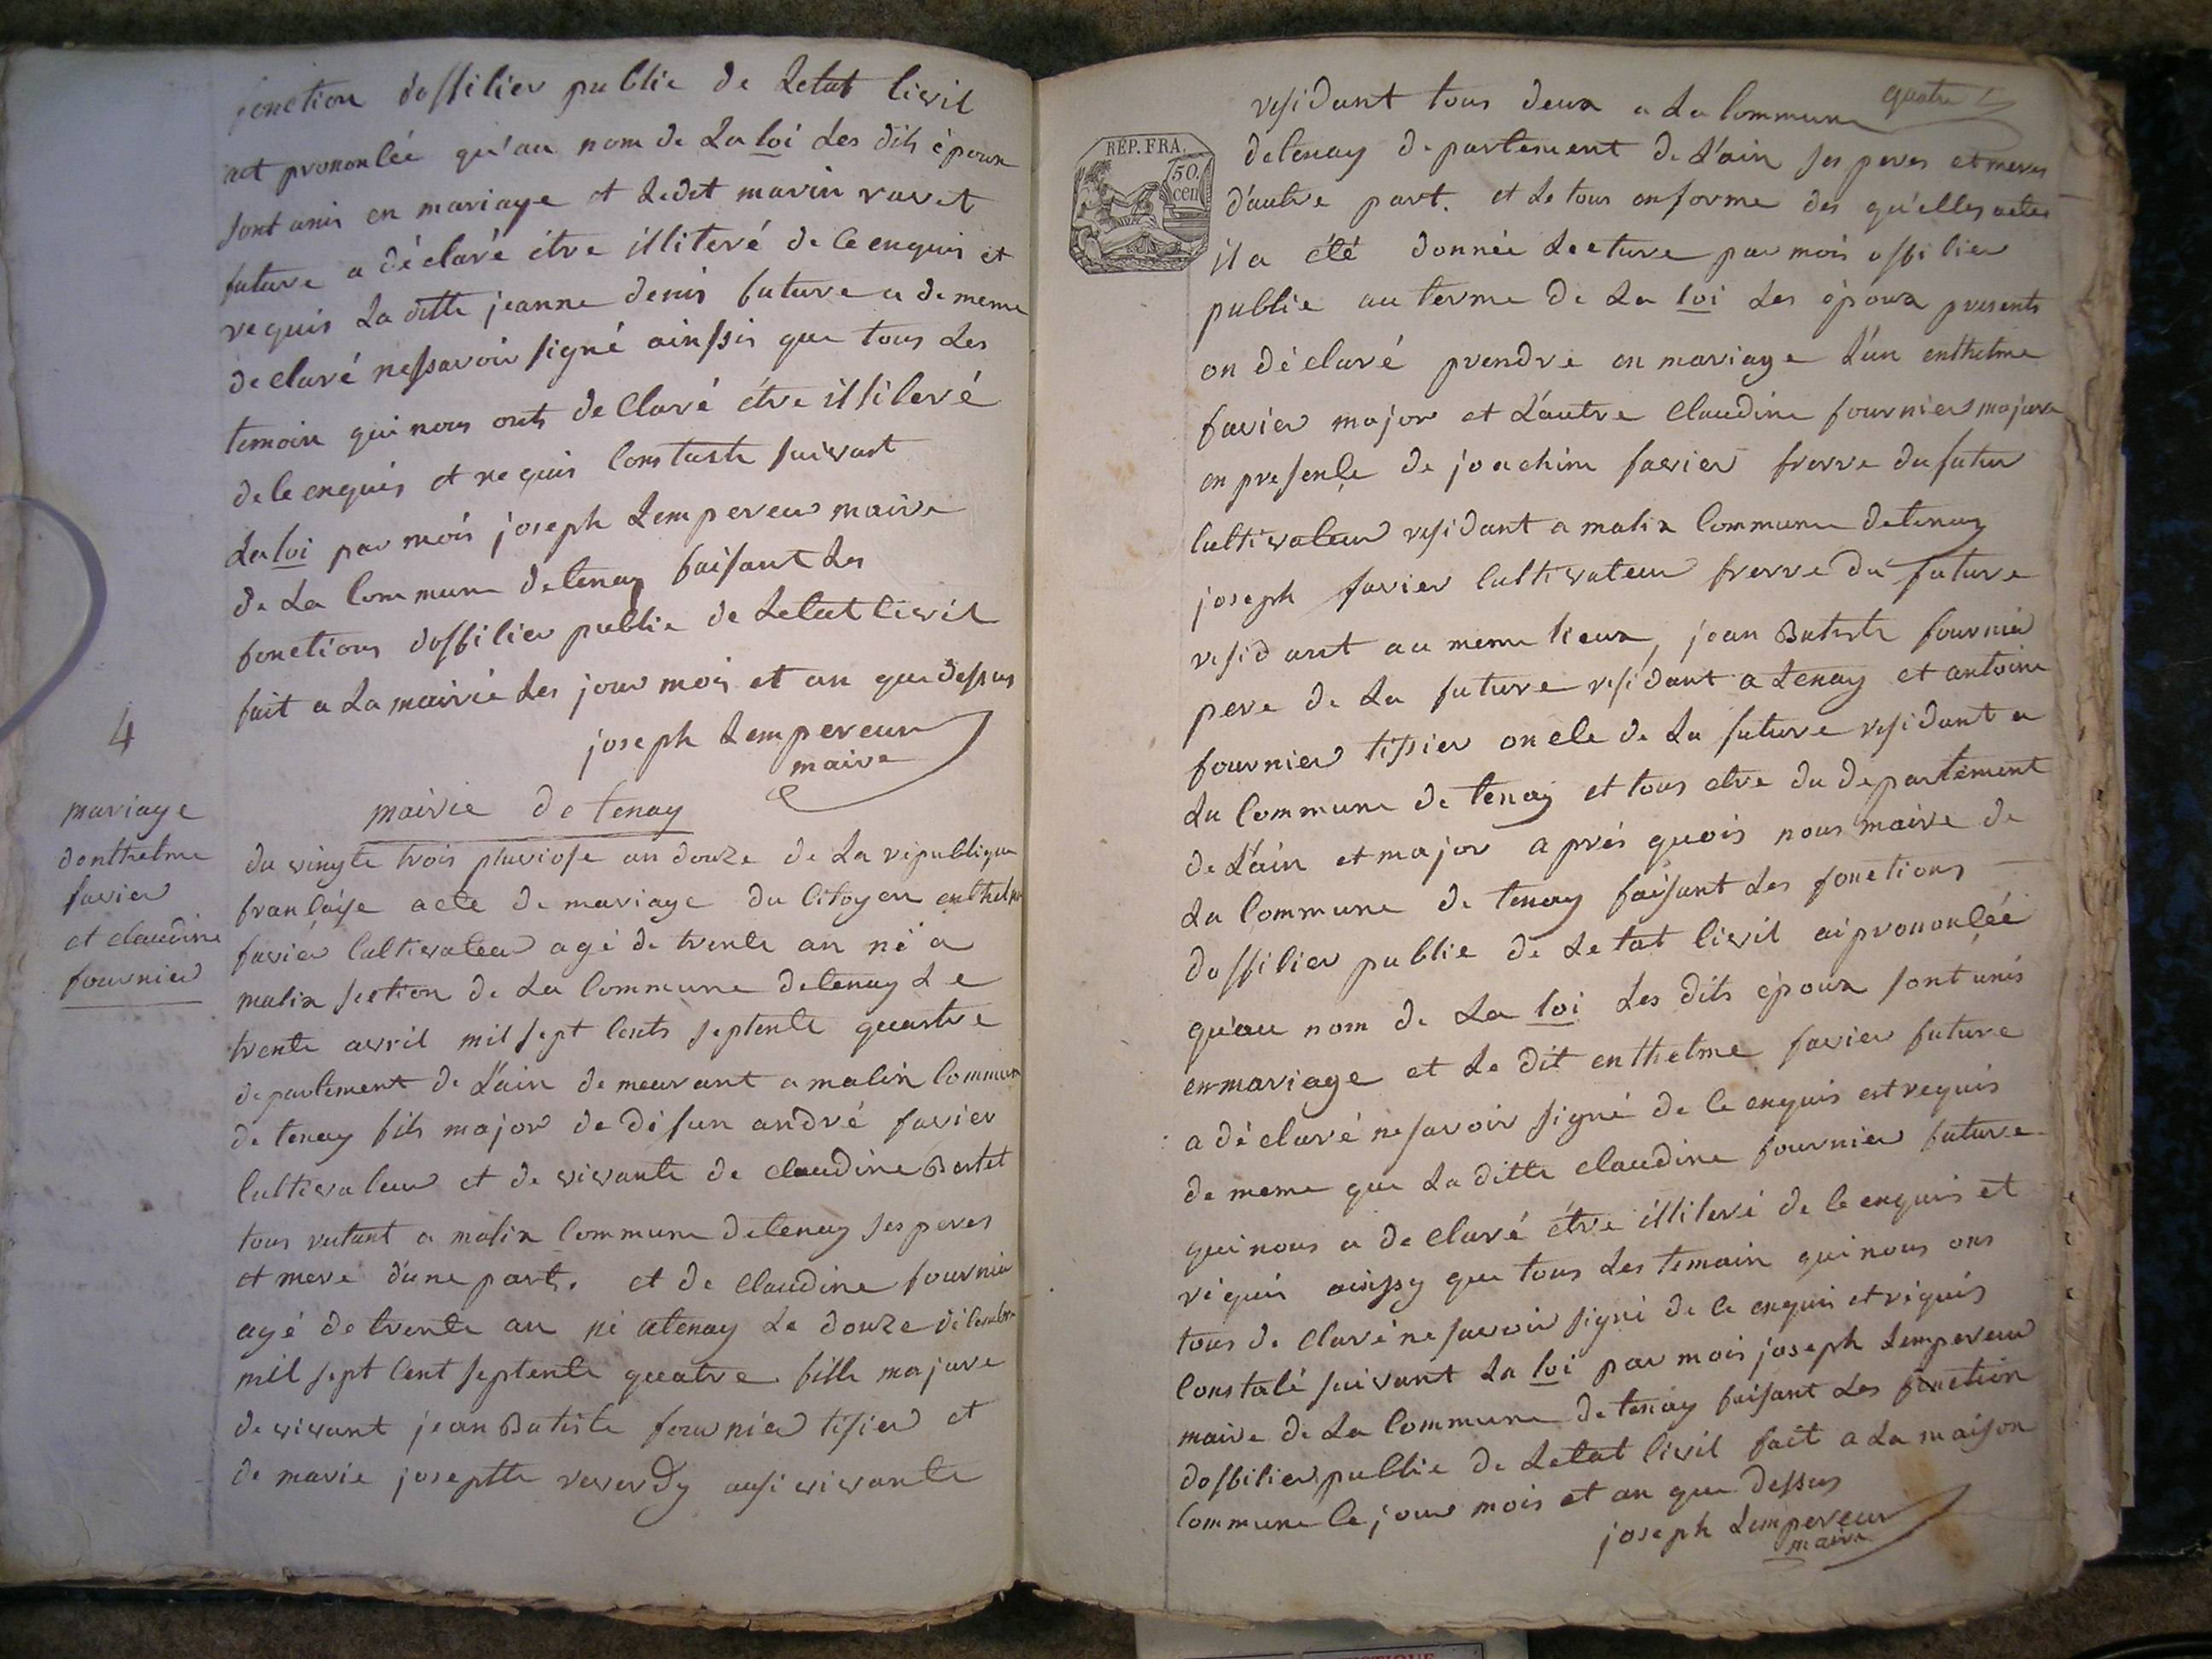 fonction dossilier publie de Letat livil
act prononlée qu'au nom de La loi Les dits époux
sont unis en mariage et Ledit marin ravet
future a déclaré étre illiteré de le enquis et
requis La ditte jeanne denis future a de meme
declaré nessavoir signé ainssis que tous Les
temoin qui nous onts declaré étre illileré
dele enquis et requis Constaste suivant
La loi par mois joseph Lempereur maire
de La Commune detenay faisant Les
fonctions dossilier publie de Letat livil
fait a La mairie Les jour mois et an que dessus
joseph Lempereur
maire
4
mariage
donthelme
favier
et claudine
fournier
mairie de tenay
du vingte trois pluviose an douze de La republique
franlaise acte de mariage du Citoyen enthelme
favier Cultivateur agé de trente an né a
malix section de La Commune detenay Le
trente avril mil sept Cents septente quastre
departement de L'ain demeurant a malix Commun
de tenay fils major de difun andré favier
Cultivateur et de vivante de claudine Bertet
tous restant a malix Commune detenay ses peres
et mere d'une part. et de Claudine fournier
agé de trente an né atenay Le douze dilembre
mil sept Cent septente quatre fille majure
de vivant jean Batiste fournier tisier et
de marie josephte reverdy ausi vivante
quatre
residant tous deux a La Commune
REP. FRA.
50.
cen
detenay departement de L'ain ses peres et meres
d'autre part. et Le tous en forme des qu'elles actes
il a été donnée Lecture par mois ossilier
publie au terme de La loi Les époux presents
on déclaré prendre en mariage L'un enthelme
favier major et L'autre Claudine fournier majure
en presençe de joachim favier frerre du futur
Cultivateur residant a malix Commune detenay
joseph favier Cultivateur frerre du future
residant au meme lieux, jean Batiste fournier
pere de La future residant a tenay et antoine
fournier tissier oncle de La future residant a
La Commune de tenay et tous etre du departement
de L'ain et major aprés quois nous maire de
La Commune de tenay faisant Les fonctions
dossilier publie de Letat livil ai prononlée
qu'au nom de La loi Les dits époux sont unis
en mariage et Le dit enthelme favier future
a déclaré ne savoir signé de le enquis est requis
de meme que La ditte claudine fournier future
qui nous a declaré étre illileré de le enquis et
requis ainssy que tous Les temoin qui nous ons
tous declaré ne savoir signé de le enquis et requis
Constalé suivant La loi par mois joseph Lempereur
maire de La Commune de tenay faisant Les fonction
dossilier publie de Letat livil fait a La maison
Commune le jour mois et an que dessus
joseph Lempereur
maire